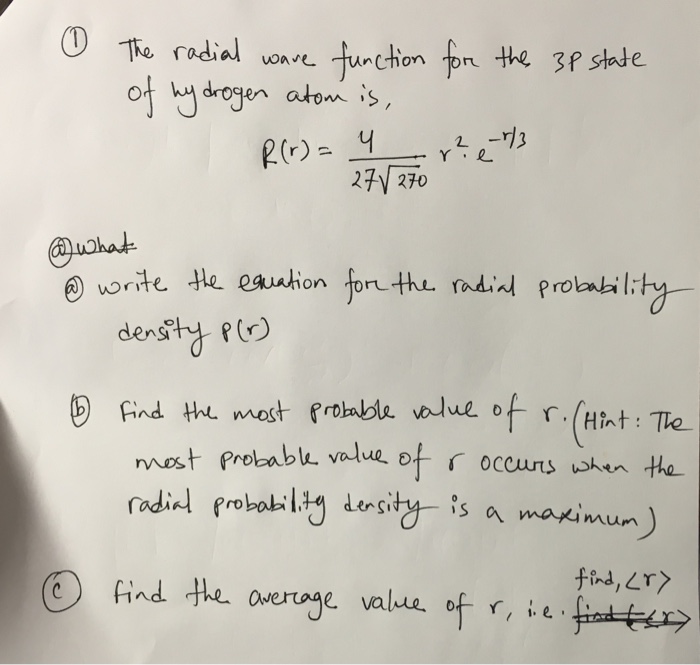 ① The radial wave function for the 3P state
of hydrogen atom is,
R(r) = 4 / 27√270 r² e^-r/3
ⓐ what
ⓐ write the equation for the radial probability
density P(r)
ⓑ Find the most probable value of r. (Hint: The
most probable value of r occurs when the
radial probability density is a maximum)
ⓒ find the average value of r, i.e. find, <r>